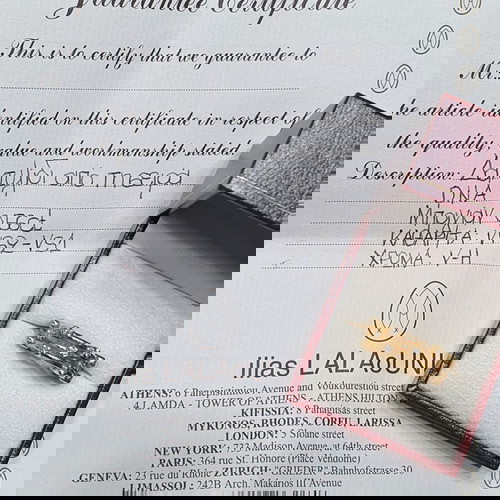 Guarantee Certificate
This is to certify that we guarantee to
Mr.
the article identified on this certificate in respect of
the quality, value and workmanship stated
Description:
ΚΑΘΑΡΟΤΗΤΑ: VVS2-VS1
ΧΡΩΜΑ: V-H
Ilias LALAoUNIS
ATHENS: 6 Panepistimiou Avenue and Voukourestiou street
4 LAMDA - TOWER OF ATHENS - ATHENS HILTON
KIFISSIA: 6 Panagitsas street
MYKONOS, RHODES, CORFU, LARISSA
LONDON: 5 Sloane street
NEW YORK: 733 Madison Avenue, at 64th street
PARIS: 364 rue St. Honoré (Place Vendôme)
GENEVA: 23 rue du Rhône ZURICH: "GRIEDER" Bahnhofstrasse 30
LIMASSOL: 242B Arch. Makarios III Avenue